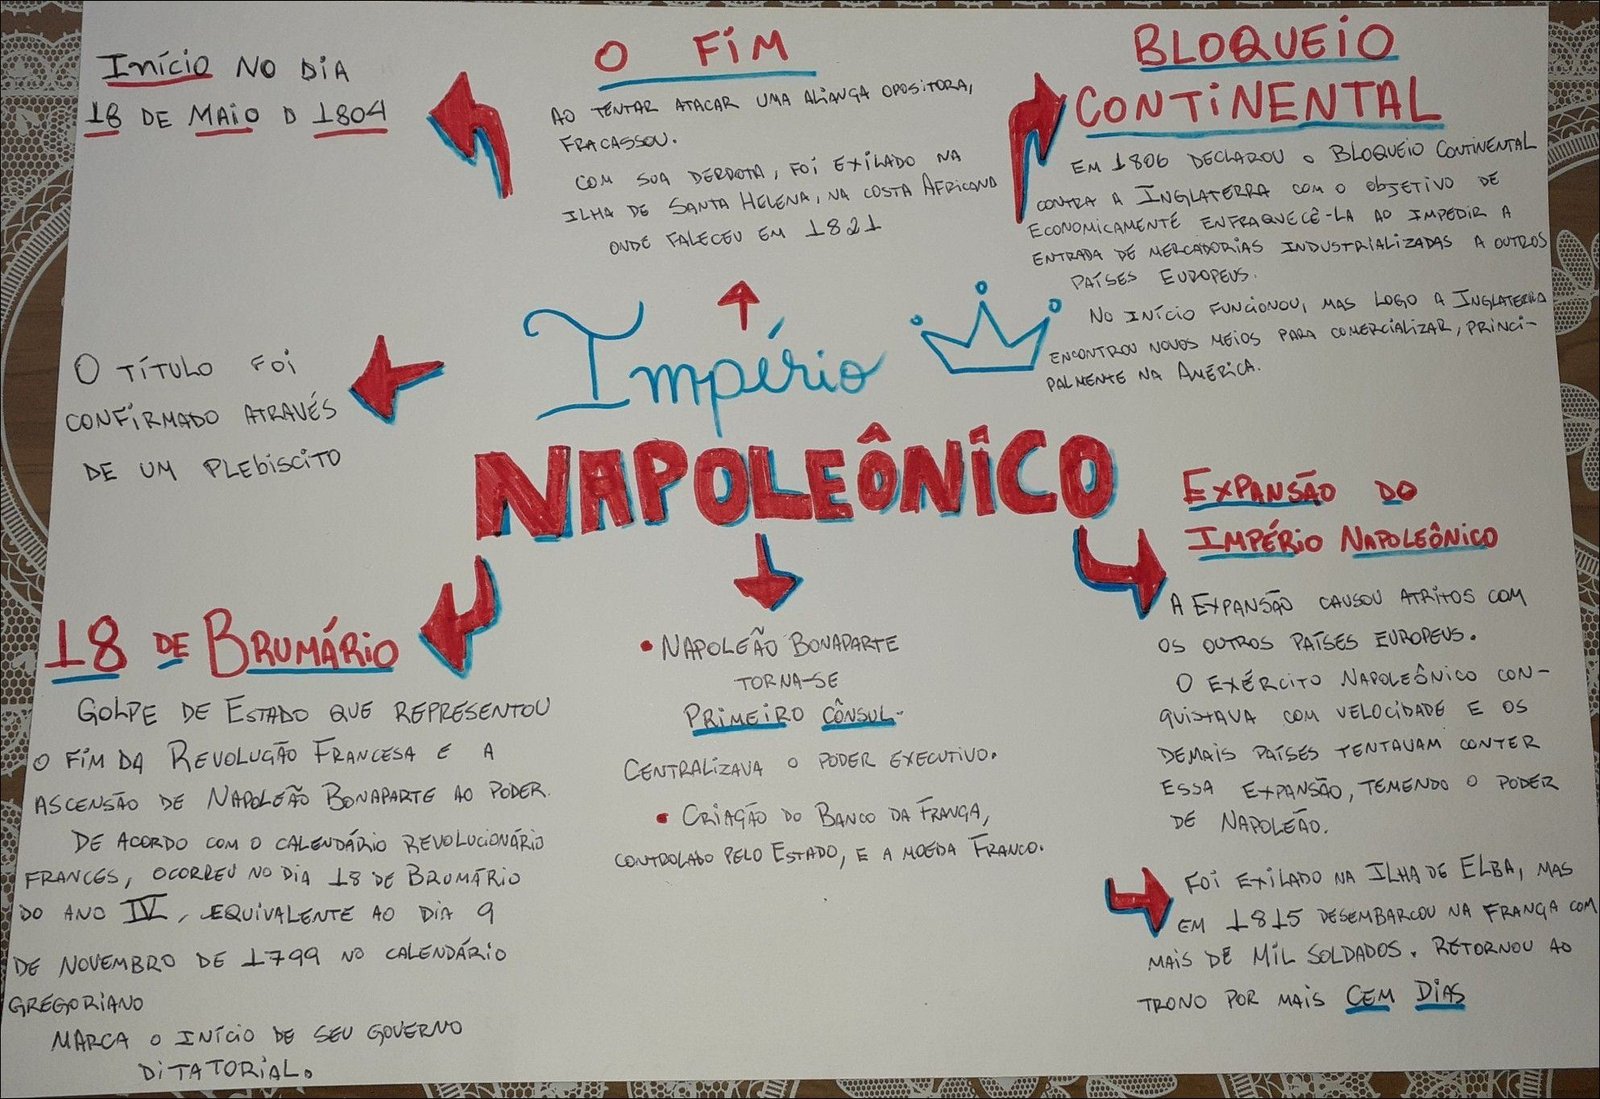 Início NO DIA
18 DE MAIO D 1804
O FIM
AO TENTAR ATACAR UMA ALIANÇA OPOSITORA,
FRACASSOU.
COM SUA DERROTA, FOI EXILADO NA
ILHA DE SANTA HELENA, NA COSTA AFRICANA
ONDE FALECEU EM 1821
BLOQUEIO
CONTINENTAL
EM 1806 DECLAROU O BLOQUEIO CONTINENTAL
CONTRA A INGLATERRA COM O OBJETIVO DE
ECONOMICAMENTE ENFRAQUECÊ-LA AO IMPEDIR A
ENTRADA DE MERCADORIAS INDUSTRIALIZADAS A OUTROS
PAÍSES EUROPEUS.
NO INÍCIO FUNCIONOU, MAS LOGO A INGLATERRA
ENCONTROU NOVOS MEIOS PARA COMERCIALIZAR, PRINCI-
PALMENTE NA AMÉRICA.
O TÍTULO FOI
CONFIRMADO ATRAVÉS
DE UM PLEBISCITO
Império
NAPOLEÔNICO
EXPANSÃO DO
IMPÉRIO NAPOLEÔNICO
A EXPANSÃO CAUSOU ATRITOS COM
OS OUTROS PAÍSES EUROPEUS.
O EXÉRCITO NAPOLEÔNICO CON-
QUISTAVA COM VELOCIDADE E OS
DEMAIS PAÍSES TENTAVAM CONTER
ESSA EXPANSÃO, TEMENDO O PODER
DE NAPOLEÃO.
FOI EXILADO NA ILHA DE ELBA, MAS
EM 1815 DESEMBARCOU NA FRANÇA COM
MAIS DE MIL SOLDADOS. RETORNOU AO
TRONO POR MAIS CEM DIAS
18 DE BRUMÁRIO
GOLPE DE ESTADO QUE REPRESENTOU
O FIM DA REVOLUÇÃO FRANCESA E A
ASCENSÃO DE NAPOLEÃO BONAPARTE AO PODER.
DE ACORDO COM O CALENDÁRIO REVOLUCIONÁRIO
FRANCÊS, OCORREU NO DIA 18 DE BRUMÁRIO
DO ANO IV, EQUIVALENTE AO DIA 9
DE NOVEMBRO DE 1799 NO CALENDÁRIO
GREGORIANO
MARCA O INÍCIO DE SEU GOVERNO
DITATORIAL.
• NAPOLEÃO BONAPARTE
TORNA-SE
PRIMEIRO CÔNSUL-
CENTRALIZAVA O PODER EXECUTIVO.
• CRIAÇÃO DO BANCO DA FRANÇA,
CONTROLADO PELO ESTADO, E A MOEDA FRANCO.